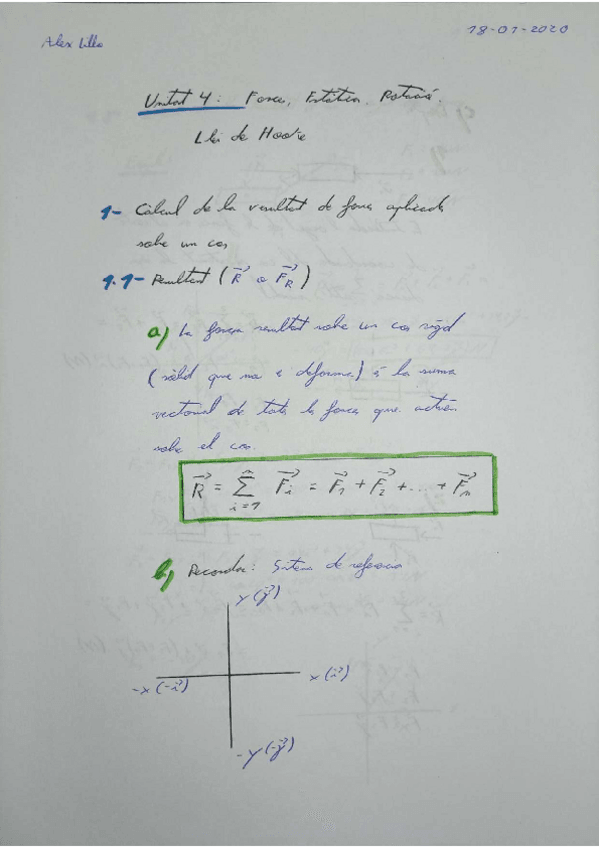 Alex Lilla
18-01-2020
Unitat 4: Forces, Estàtica, Rotació.
Llei de Hooke
1- Càlcul de la resultat de forces aplicades
sobre un cos
1.1- Resultat (R⃗ o F⃗R)
a) La força resultat sobre un cos rígid
(sòlid que no es deforma) és la suma
vectorial de tots les forces que actúen
sobre el cos.
R⃗ = ∑ⁿᵢ₌₁ F⃗ᵢ = F⃗₁ + F⃗₂ + ... + F⃗ₙ
b) Recordar: Sistema de referència
y (j⃗)
-x (-i⃗)
x (i⃗)
-y (-j⃗)